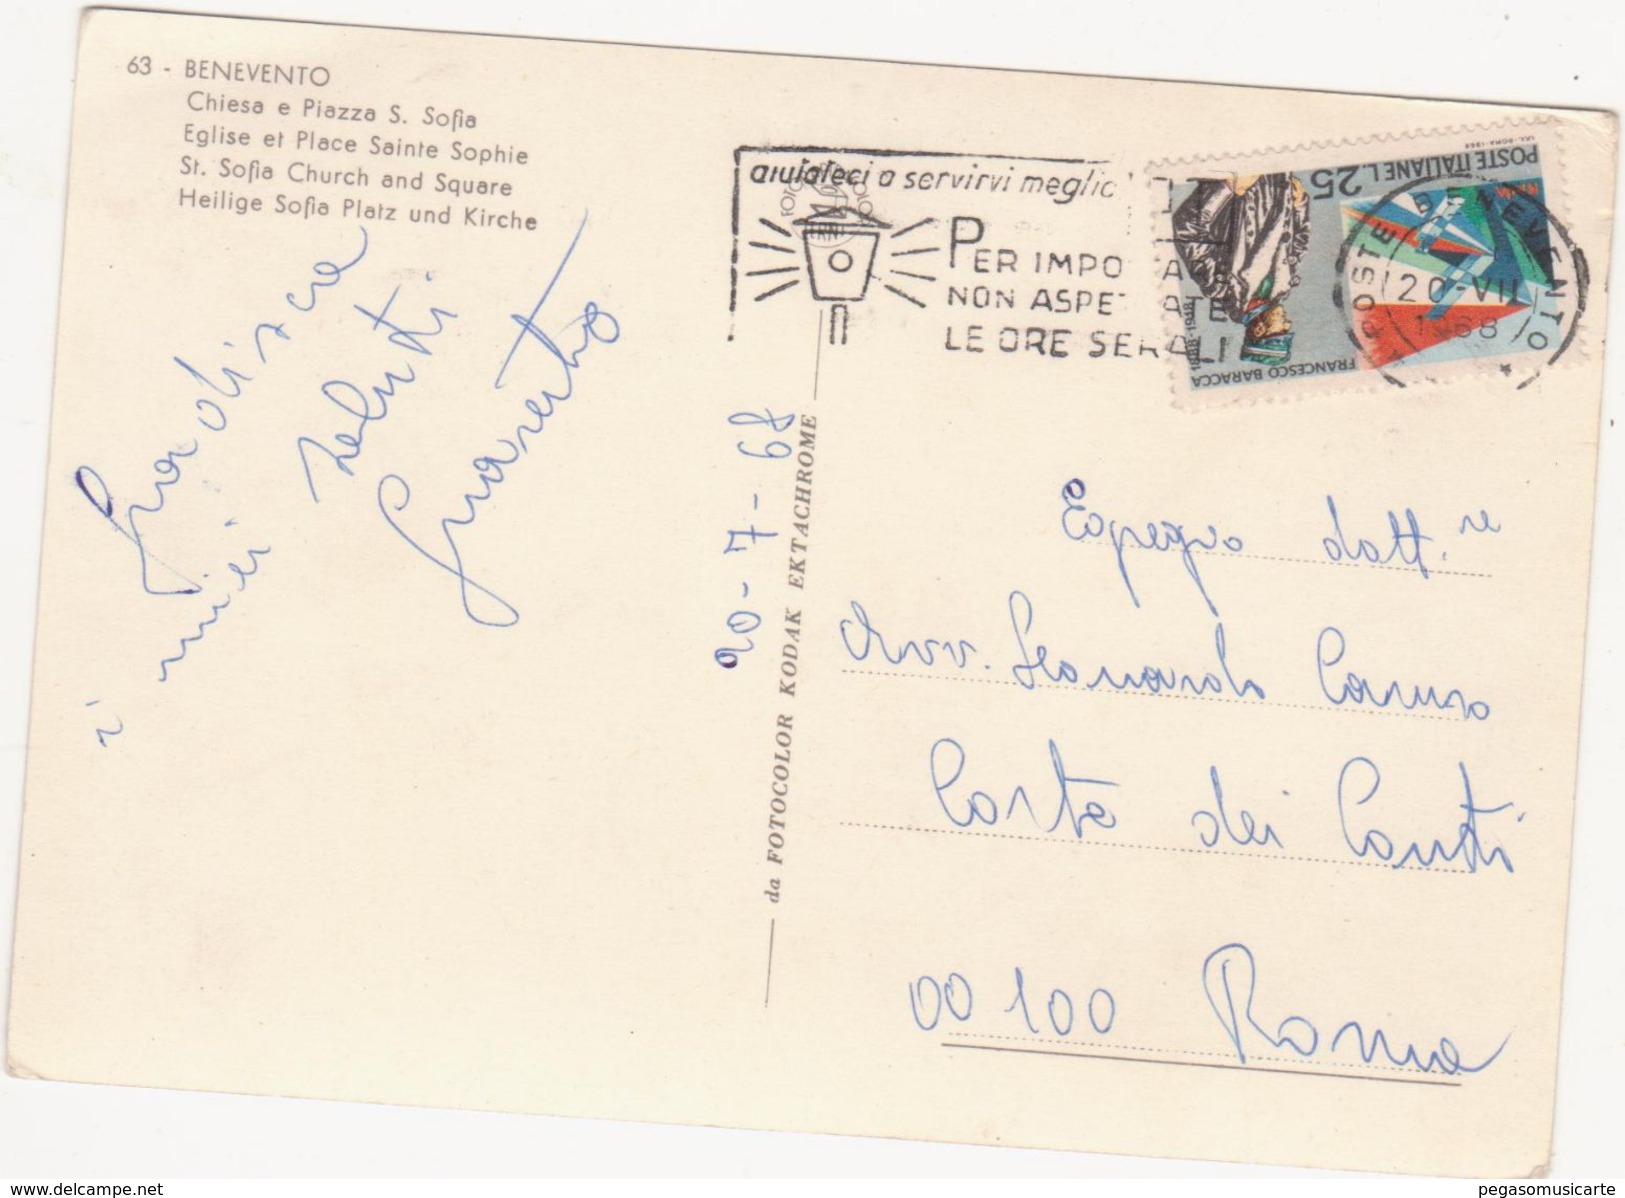 63 - BENEVENTO
Chiesa e Piazza S. Sofia
Eglise et Place Sainte Sophie
St. Sofia Church and Square
Heilige Sofia Platz und Kirche
aiutateci a servirvi meglio
PER IMPO ARE
NON ASPE ATE
LE ORE SERALI
POSTE ITALIANE L. 25
1888-1918
FRANCESCO BARACCA
POSTE BENEVENTO
20-VII
1968
Gradisca
i miei saluti
20-7-68
da FOTOCOLOR KODAK EKTACHROME
Egregio dott.re
Avv. Leonardo Caruso
Corte dei Conti
00100 Roma
www.delcampe.net
pegasomusicarte